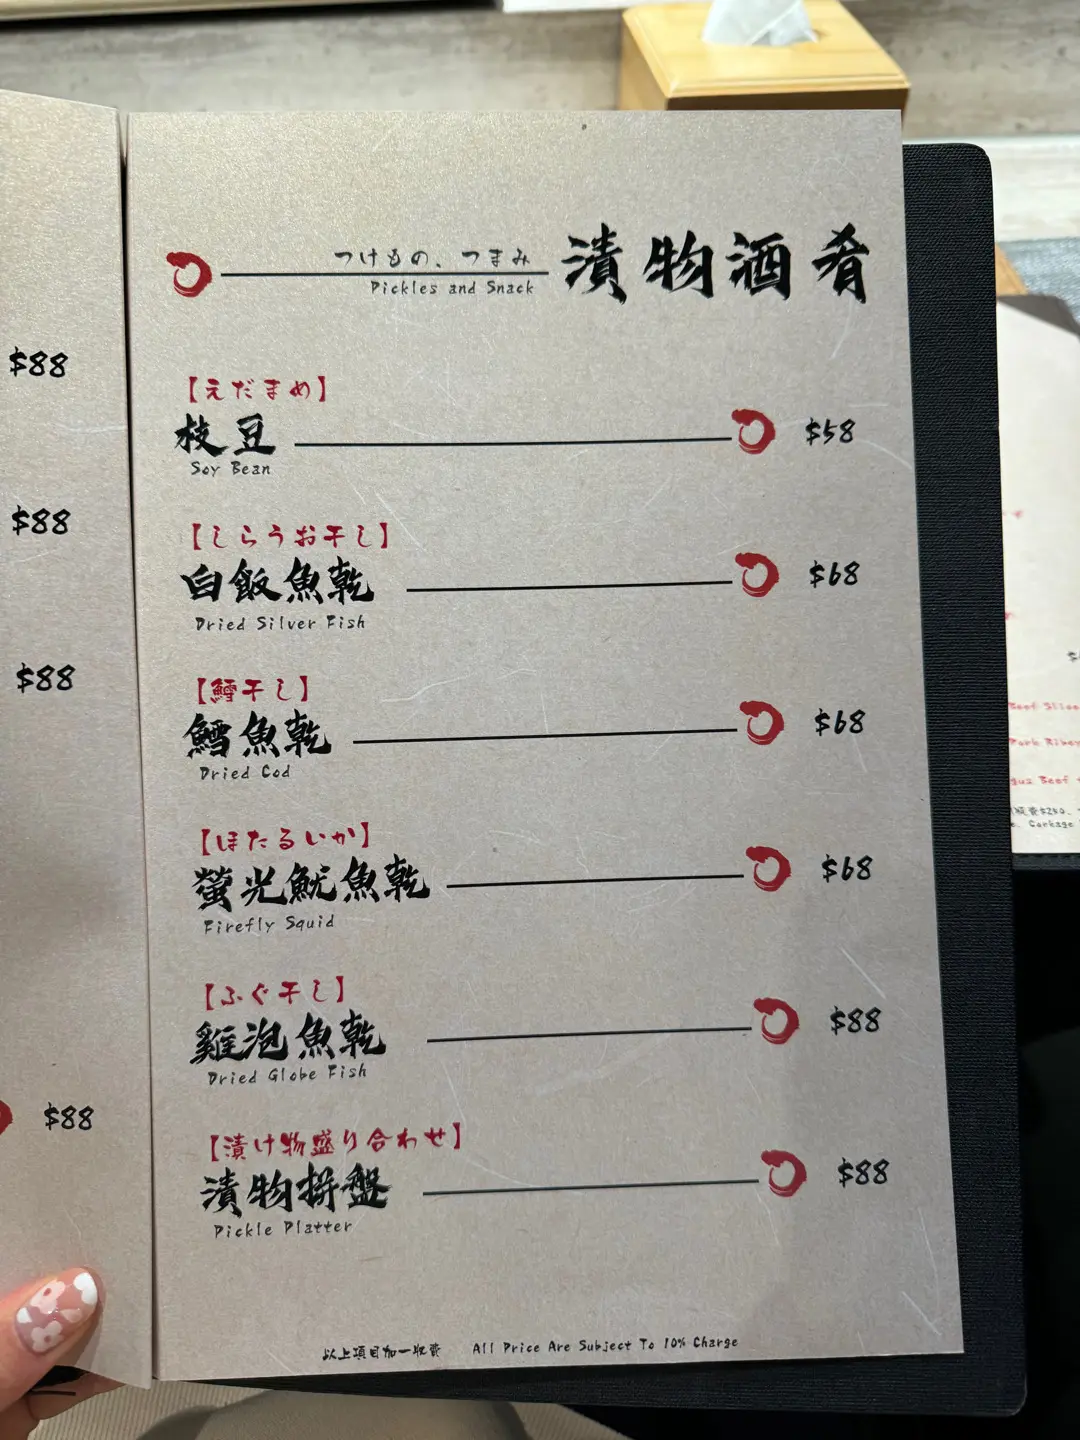 $88
$88
$88
$88
つけもの、つまみ
Pickles and Snack
漬物酒肴
【えだまめ】
枝豆
$58
Soy Bean
【しらうお干し】
白飯魚乾
$68
Dried Silver Fish
【鱈干し】
鱈魚乾
$68
Dried Cod
【ほたるいか】
螢光魷魚乾
$68
Firefly Squid
【ふぐ干し】
雞泡魚乾
$88
Dried Globe Fish
【漬け物盛り合わせ】
漬物拼盤
$88
Pickle Platter
以上項目加一收費 All Price Are Subject To 10% Charge
Beef Slice
Pork Ribey
gus Beef
Garbage